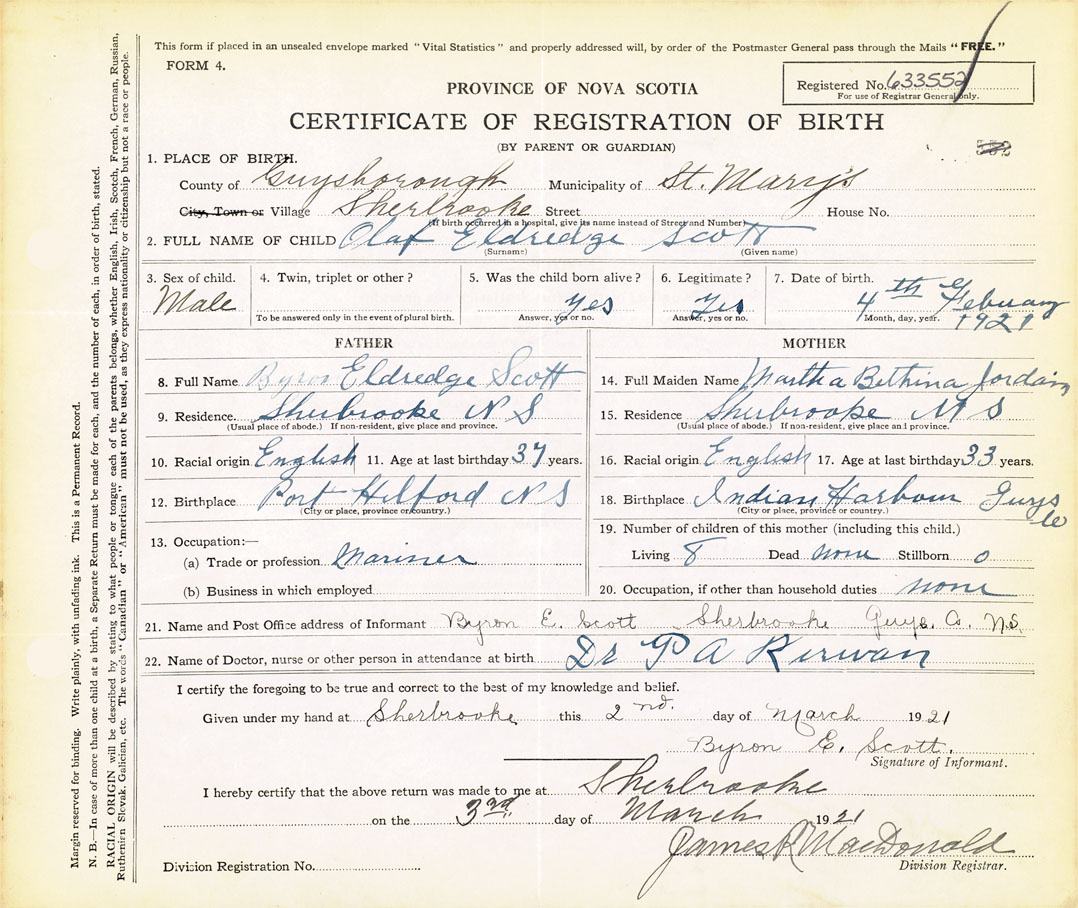 This form if placed in an unsealed envelope marked "Vital Statistics" and properly addressed will, by order of the Postmaster General pass through the Mails "FREE."
FORM 4.
Registered No. 633552
For use of Registrar General only.
PROVINCE OF NOVA SCOTIA
CERTIFICATE OF REGISTRATION OF BIRTH
(BY PARENT OR GUARDIAN)
1. PLACE OF BIRTH.
County of Guysborough Municipality of St. Mary's
City, Town or Village Sherbrooke Street House No.
(If birth occurred in a hospital, give its name instead of Street and Number)
2. FULL NAME OF CHILD Olaf Eldredge Scott
(Surname) (Given name)
3. Sex of child. 4. Twin, triplet or other? 5. Was the child born alive? 6. Legitimate? 7. Date of birth.
Male Yes Yes 4th of February 1921
To be answered only in the event of plural birth. Answer, yes or no. Answer, yes or no. Month, day, year.
FATHER
8. Full Name Byron Eldredge Scott
9. Residence. Sherbrooke N S
(Usual place of abode.) If non-resident, give place and province.
10. Racial origin English 11. Age at last birthday 37 years.
12. Birthplace Port Hilford N S
(City or place, province or country.)
13. Occupation:—
(a) Trade or profession Mariner
(b) Business in which employed
MOTHER
14. Full Maiden Name Martha Bethina Jordain
15. Residence Sherbrooke N S
(Usual place of abode.) If non-resident, give place and province.
16. Racial origin English 17. Age at last birthday 33 years.
18. Birthplace Indian Harbour Guys Co
(City or place, province or country.)
19. Number of children of this mother (including this child.)
Living 8 Dead none Stillborn 0
20. Occupation, if other than household duties none
21. Name and Post Office address of Informant Byron E. Scott Sherbrooke Guys. Co. N.S.
22. Name of Doctor, nurse or other person in attendance at birth Dr P A Kirwan
I certify the foregoing to be true and correct to the best of my knowledge and belief.
Given under my hand at Sherbrooke this 2nd. day of March 1921
Byron E. Scott.
Signature of Informant.
I hereby certify that the above return was made to me at Sherbrooke
on the 3rd. day of March 1921
James R MacDonald
Division Registrar.
Division Registration No.
Margin reserved for binding. Write plainly, with unfading ink. This is a Permanent Record.
N. B.—In case of more than one child at a birth, a Separate Return must be made for each, and the number of each, in order of birth, stated.
RACIAL ORIGIN will be described by stating to what people or tongue each of the parents belongs, whether English, Irish, Scotch, French, German, Russian,
Ruthenian Slovak, Galician, etc. The words "Canadian" or "American" must not be used, as they express nationality or citizenship but not a race or people.